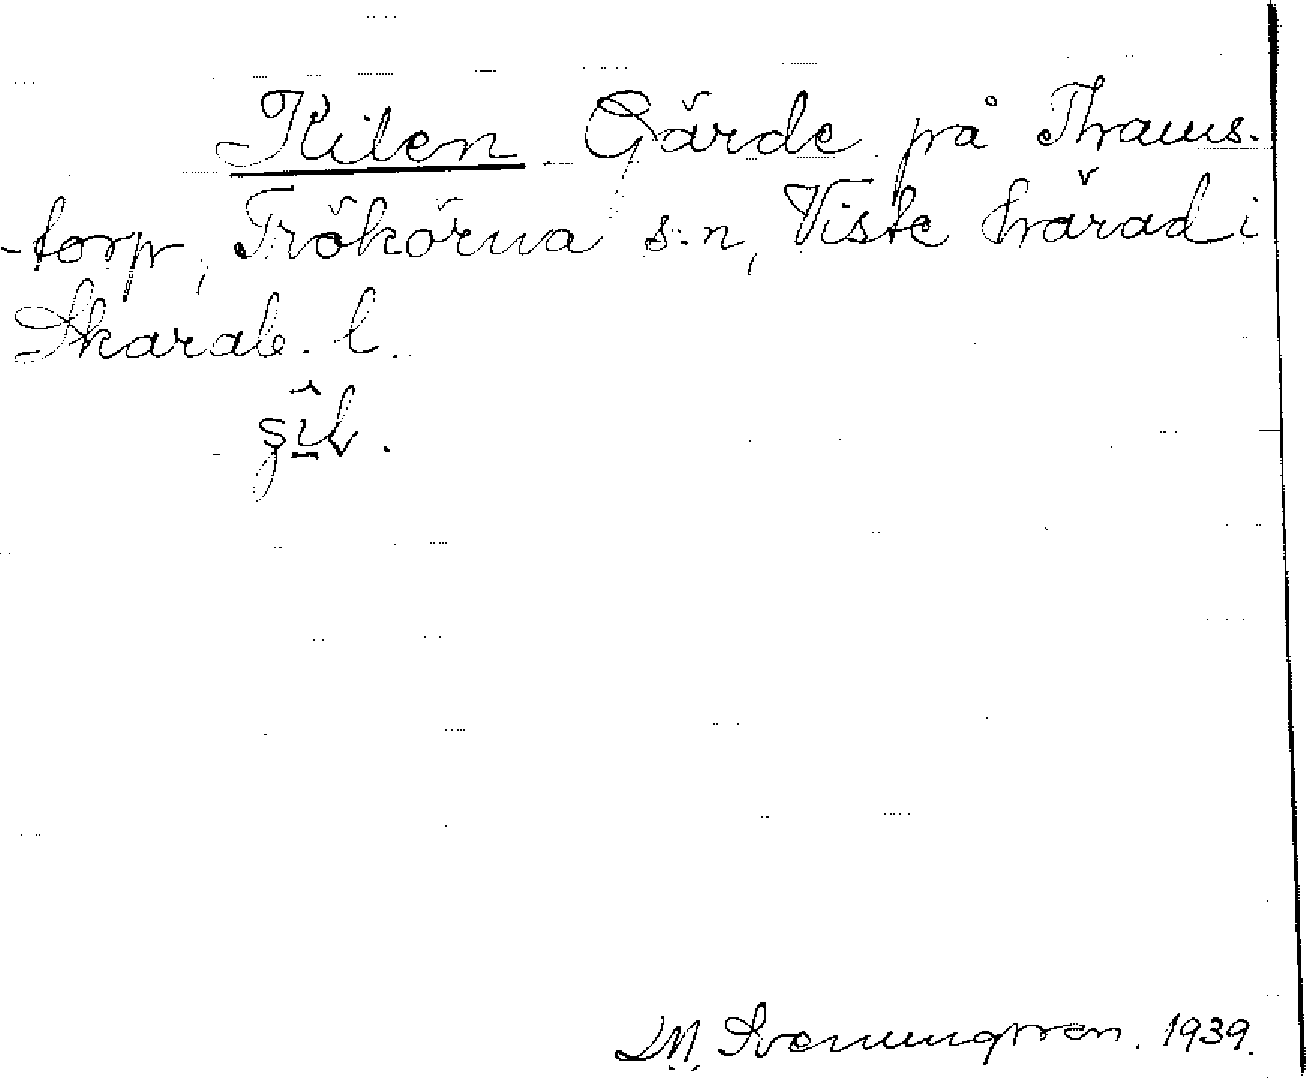 Kilen Gärde på Thams-
-torp, Trökörna s:n, Viste härad i
Skarab. l.
M. Svenungsson. 1939.